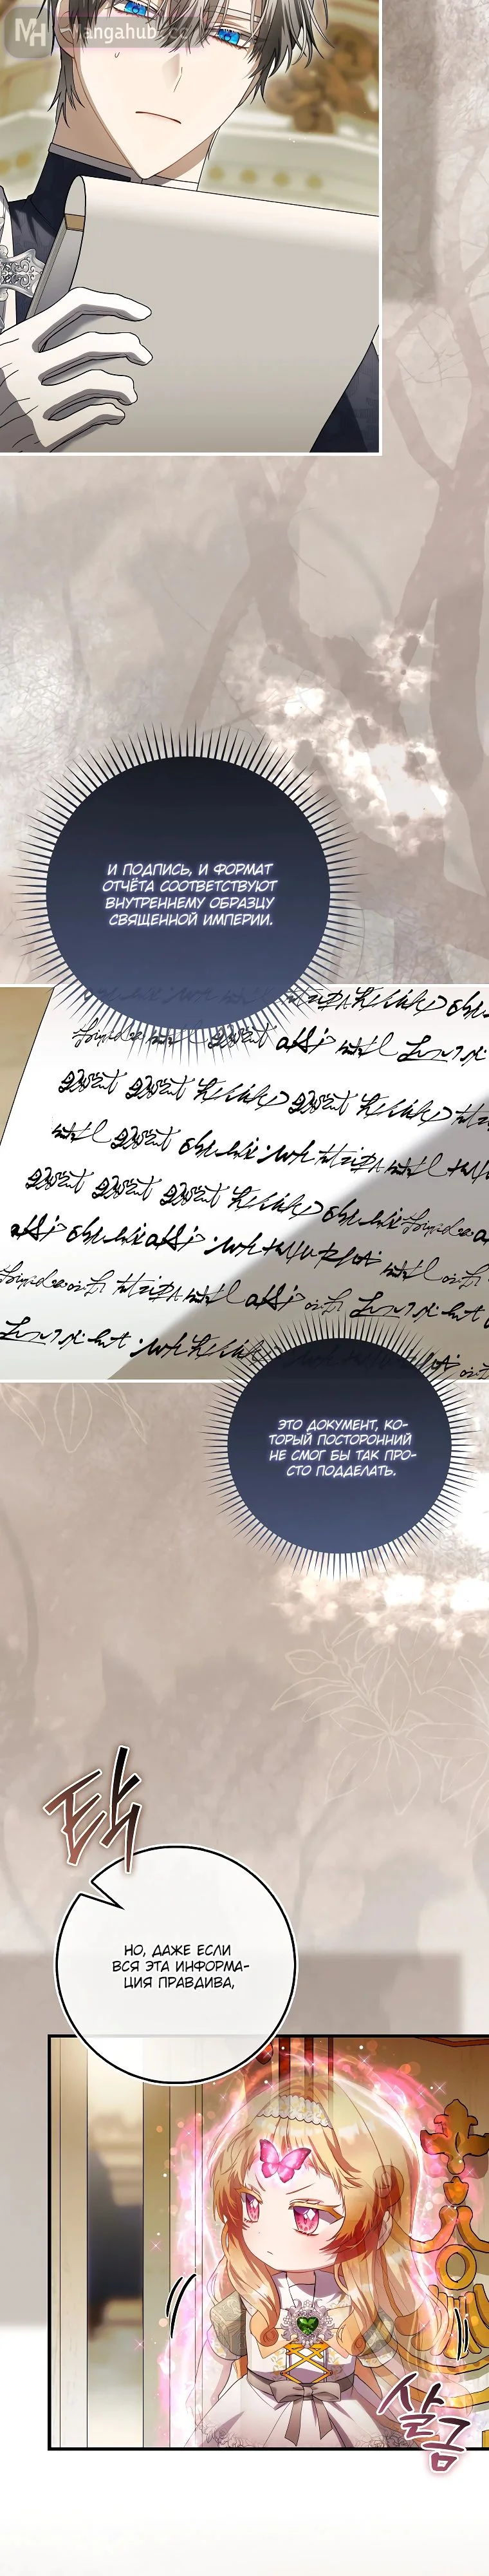 MH Mangahub.cc
И ПОДПИСЬ, И ФОРМАТ
ОТЧЁТА СООТВЕТСТВУЮТ
ВНУТРЕННЕМУ ОБРАЗЦУ
СВЯЩЕННОЙ ИМПЕРИИ.
ЭТО ДОКУМЕНТ, КО-
ТОРЫЙ ПОСТОРОННИЙ
НЕ СМОГ БЫ ТАК ПРО-
СТО ПОДДЕЛАТЬ.
탁
НО, ДАЖЕ ЕСЛИ
ВСЯ ЭТА ИНФОРМА-
ЦИЯ ПРАВДИВА,
살금